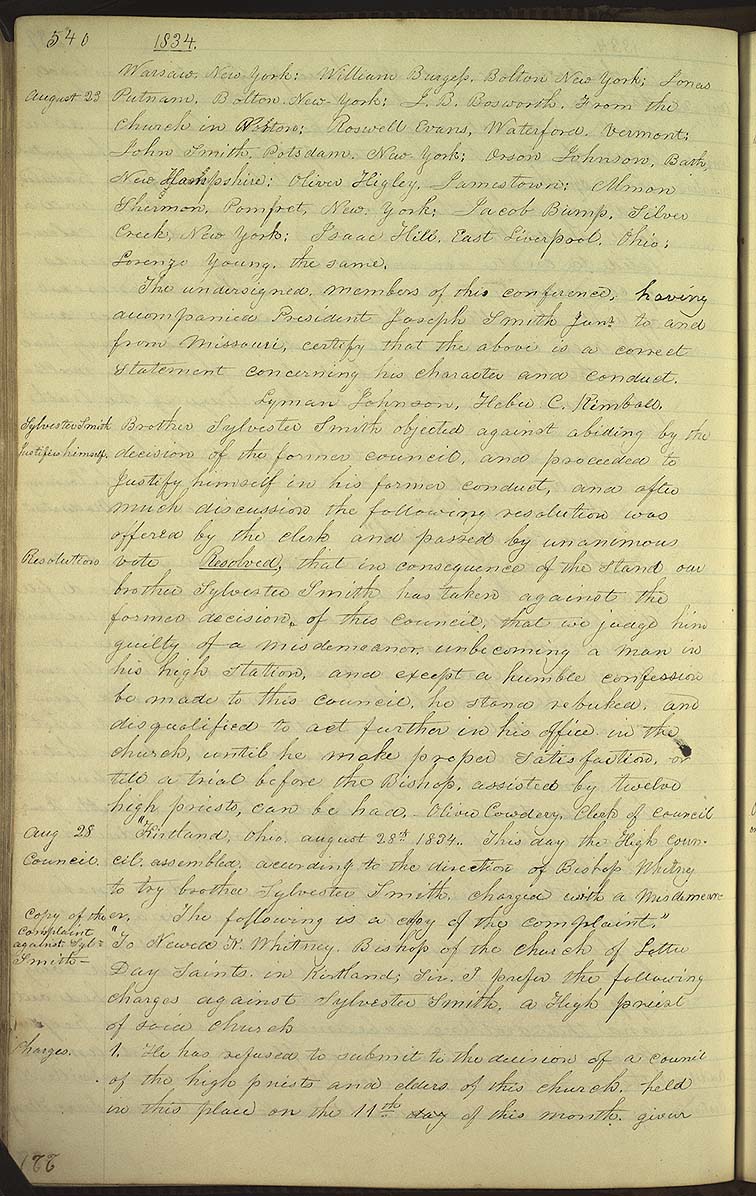 540 1834.
Warsaw, New York; William Burgess, Bolton New York; Jonas
August 23 Putnam, Bolton New-York; J. B. Bosworth, From the
church in ; Roswell Evans, Waterford, Vermont;
John Smith, Potsdam, New York; Orson Johnson, Bath,
New Hampshire; Oliver Higley, Jamestown; Almon
Shermon, Pomfret, New York; Jacob Bump, Silver
Creek, New York; Isaac Hill, East Liverpool, Ohio;
Lorenzo Young, the same.
The undersigned, members of this conference, having
accompanied President Joseph Smith Junr. to and
from Missouri, certify that the above is a correct
statement concerning his character and conduct.
Lyman Johnson, Heber C. Kimball.
Sylvester Smith Brother Sylvester Smith objected against abiding by the
Justifies himself. decision of the former council, and proceeded to
Justify himself in his former conduct, and after
much discussion the following resolution was
offered by the clerk and passed by unanimous
Resolution vote Resolved, that in consequence of the stand our
brother Sylvester Smith has taken against the
former decision, of this council, that we judge him
guilty of a misdemeanor, unbecoming a man in
his high station, and except a humble confession
be made to this council, he stand rebuked, and
disqualified to act further in his office in the
church, until he make proper satisfaction, or
till a trial before the Bishop, assisted by twelve
high priests, can be had. Oliver Cowdery, Clerk of Council
Aug 28 "Kirtland, Ohio, august 28th 1834.. This day the High Coun-
Council. cil, assembled, according to the direction of Bishop Whitney
to try brother Sylvester Smith, charged with a Misdemean-
Copy of the or. The following is a copy of the complaint."
complaint
against Sylr "To Newel K. Whitney. Bishop of the church of Latter
Smith— Day Saints. in Kirtland; Sir. I prefer the following
charges against Sylvester Smith, a High priest
of said church
Charges. 1. He has refused to submit to the decision of a council
of the high priests and elders of this church, held
in this place on the 11th day of this month, given
177